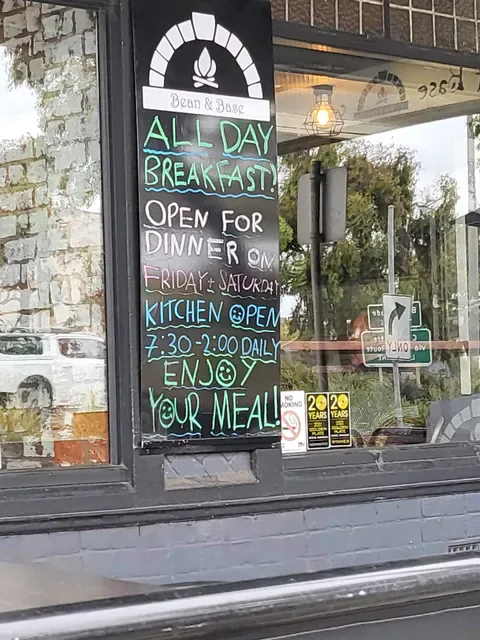 Bean & Base
ALL DAY
BREAKFAST!
OPEN FOR
DINNER ON
FRIDAY + SATURDAY
KITCHEN OPEN
7:30 - 2:00 DAILY
ENJOY
YOUR MEAL!
NO
SMOKING
20 YEARS
20 YEARS
ONLY